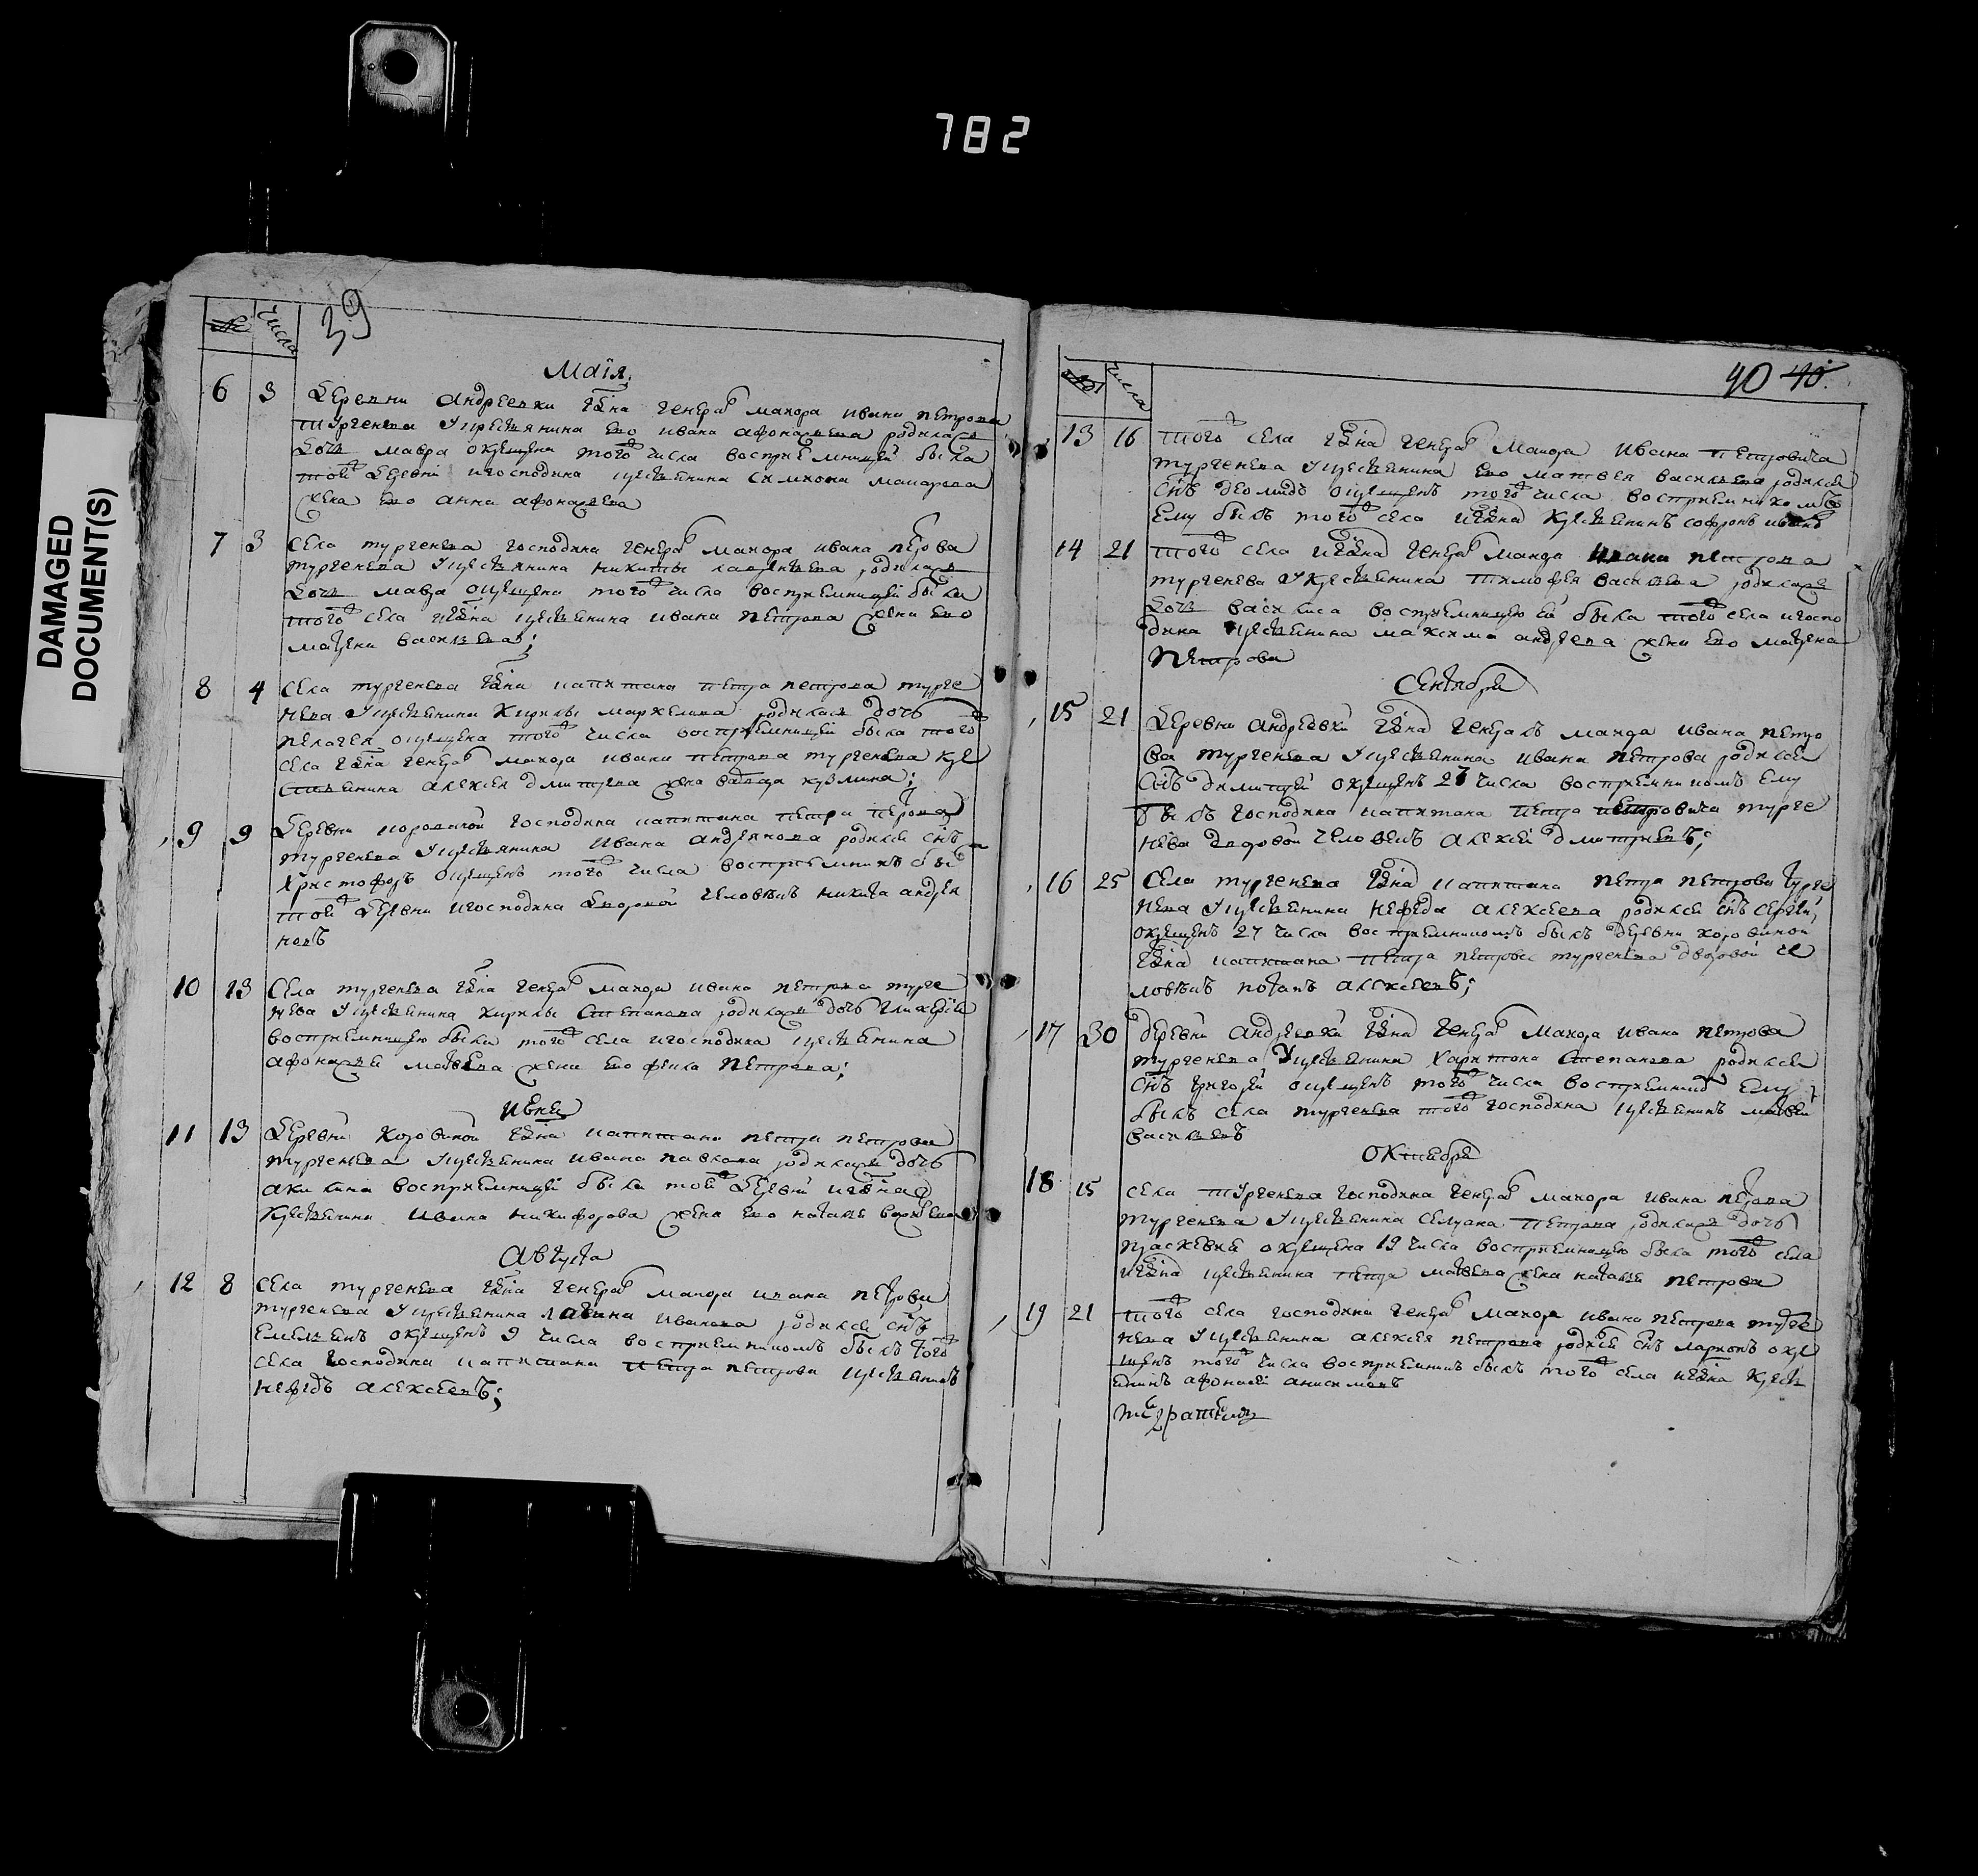 782
DAMAGED
DOCUMENT(S)
№ числа 39
Маїя
6 3 Деревни андреевки гдна генерал маиора ивана петрова
тургенева у крестьянина ево ивана афонасьева родилась
дочь мавра окрещена того числа восприемницей была
той деревни и господина крестьянина симиона макарова
жена ево анна афонасьева
7 3 Села тургенева господина генерал маиора ивана петрова
тургенева у крестьянина никиты савельева родилась
дочь мавра окрещена того числа восприемницей была
того села и гдна крестьянина ивана петрова жена ево
матрена васильева;
8 4 Села тургенева гдна капитана петра петрова турге
нева у крестьянина кирилы маркелова родилась дочь
пелагея окрещена того числа восприемницей была того
села гдна генерал маиора ивана петрова тургенева кре
стьянина алексея дмитриева жена варвара кузмина;
9 9 Деревни коровиной господина капитана петра петрова
тургенева у крестьянина ивана андреянова родился снъ
христофоръ окрещенъ того числа восприемникъ былъ
той деревни и господина дворовой человекъ никита андрея
новъ
10 13 Села тургенева гдна генерал маиора ивана петрова турге
нева у крестьянина кирилы степанова родилась дочь гликерїя
восприемницею была того села и господина крестьянина
афонасья матвеева жена ево фекла петрова;
июня
11 13 Деревни коровиной гдна капитана петра петрова
тургенева у крестьянина ивана павлова родилась дочь
акилина восприемницей была той деревни и гдна
крестьянина ивана никифорова жена ево наталья васильева
Августа
12 8 Села тургенева гдна генерал маиора ивана петрова
тургенева у крестьянина иванова родился снъ
емельянъ окрещенъ 9 числа восприемникомъ былъ того
села господина капитана петра петрова крестьянинъ
нефедъ алексеевъ;
№ числа 40 40
13 16 того села гдна генерал маиора ивана петровича
тургенева у крестьянина ево матвея васильева родился
снъ деомидъ окрещенъ того числа восприемникомъ
ему былъ того села и гдна крестьянинъ софронъ ивановъ
14 21 того села и гдна генерал маиора ивана петрова
тургенева у крестьянина тимофея васильева родилась
дочь василиса восприемницею ей была того села и госпо
дина крестьянина максима андреева жена ево матрена
петрова
Сентября
15 21 Деревни андреевки гдна генералъ маиора ивана петро
ва тургенева у крестьянина ивана петрова родился
снъ димитрей окрещенъ 27 числа восприемникомъ ему
былъ господина капитана петра петровича турге
нева дворовой человекъ алексей дмитриевъ;
16 25 Села тургенева гдна капитана петра петрова турге
нева у крестьянина нефеда алексеева родился снъ сергей,
окрещенъ 27 числа восприемникомъ былъ деревни коровиной
гдна капитана петра петрова тургенева дворовой че
ловекъ потапъ алексеевъ;
17 30 деревни андреевки гдна генерал маиора ивана петрова
тургенева у крестьянина харитона степанова родился
снъ григорей окрещенъ того числа восприемникъ ему
былъ села тургенева того господина крестьянинъ матвей
васильевъ
октября
18 15 села тургенева господина генерал маиора ивана петрова
тургенева у крестьянина селуяна петрова родилась дочь
прасковия окрещена 19 числа восприемницею была того села
и гдна крестьянина петра матвеева жена наталья петрова
19 21 того села господина генерал маиора ивана петрова турге
нева у крестьянина алексея петрова родился снъ ларионъ окре
щенъ того числа восприемникъ былъ того села и гдна кресть
енинъ афонасей анисимовъ